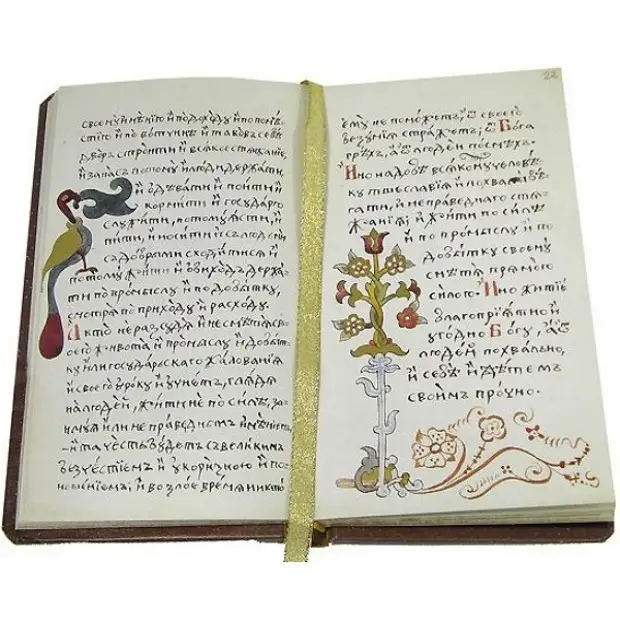 своему имѣнию и по доходу и по помѣ-
стию и по вотчине и таковъ себѣ
дворъ строити и всякое стяжание,
и запасъ потому и люди держати,
и одевати и поити и
кормити и государю
служити, по тому ясти, и
пити, и носити и с людми
з добрыми сходитися и
потому жити и обиход держа-
ти по промыслу и по добытку,
смотря по приходу и расходу.
А кто не разсудя и не смѣтя сво-
его живота и промыслу и добыт-
ку или государьскаго жалования
и своего уроку и учнетъ, глядя
на людей, жити не по силѣ, за-
имуя или не праведнемъ имѣнием
и та честь будетъ с великимъ
безчестiемъ и укоризною и по-
ношениемъ, и во злое время никто
22
ему не поможетъ, ѿ своего
безумия стражетъ, ѿ Бога
грѣхъ, а ѿ людей посмѣхъ.
Ино надобѣ всякому человѣ-
ку тщеславия и похвалы бѣ-
гати, и неправеднаго стя-
жания, и жити по силѣ
и по промыслу и по
добытку своему
смѣтя прямою
силою. Ино житiе
благоприятно и
угодно Богу, а ѿ
людей похвально,
и себѣ и дѣтемъ
своимъ прочно.